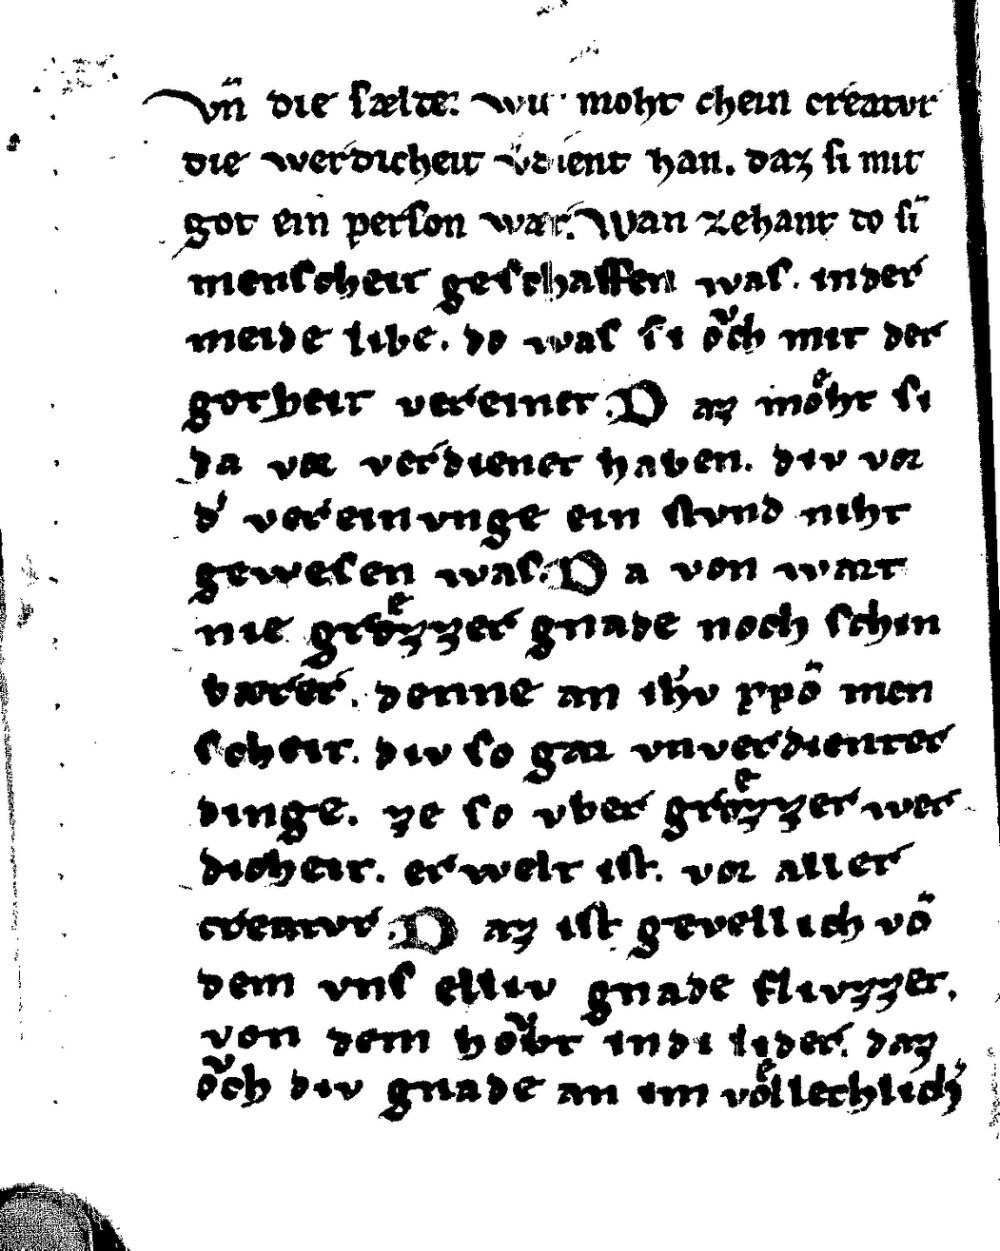 vn̄ die sælte. wie moht chein creatvr
die werdicheit v̓dient han. daz si mit
got ein person wær. Wan zehant do si
menscheit geschaffen was. inder
meide libe. do was si ovͦch mit der
gotheit vereinet. D az moͤht si
da vor verdienet haben. div vor
d̓ vereinvnge ein stvnd niht
gewesen was. D a von wart
nie groͤzzer gnade noch schin
bærer. denne an ih̓v xpō men
scheit. div so gar vnverdienter
dinge. ze so vber groͤzzer wer
dicheit. erwelt ist. vor aller
creatvr. D az ist gevellich vō
dem vns elliv gnade flivzzet.
von dem hoͮbt indi lider. daz
oͮch div gnade an im voͤllechlich̓